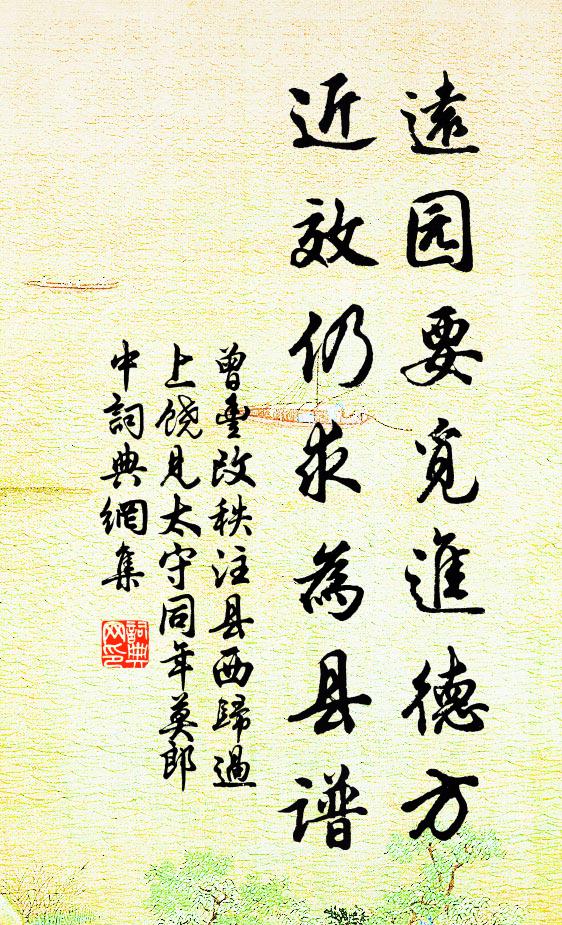 遠园要覓進德方
近效仍求為县谱
曾豊改秩注县西歸過
上饒见太守同年莫郎
中詞典網集
詞典
网印